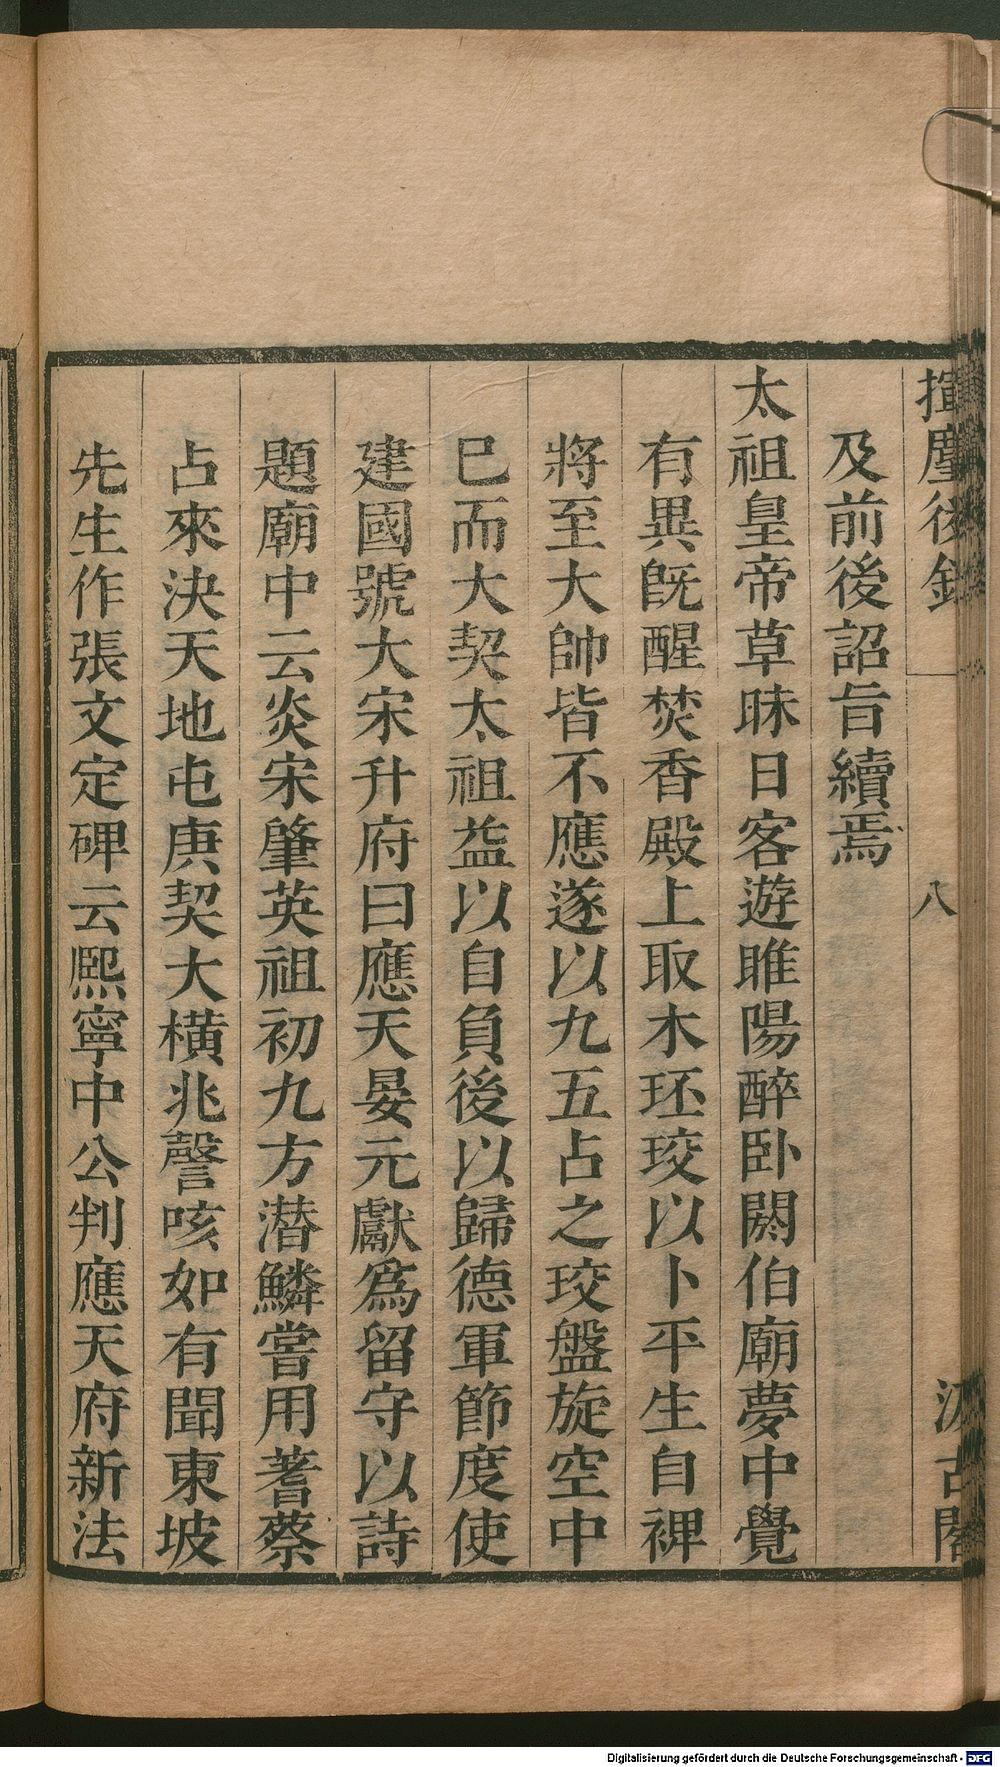 揮麈後錄 一 八 汲古閣
及前後詔旨續焉
太祖皇帝草昧日客遊睢陽醉卧閼伯廟夢中覺
有異旣醒焚香殿上取木珓珓以卜平生自裨
將至大帥皆不應遂以九五占之珓盤旋空中
巳而大契太祖益以自負後以歸德軍節度使
建國號大宋升府曰應天晏元獻爲留守以詩
題廟中云炎宋肇英祖初九方潜鱗嘗用蓍蔡
占來決天地屯庚契大橫兆謦咳如有聞東坡
先生作張文定碑云熙寧中公判應天府新法
Digitalisierung gefördert durch die Deutsche Forschungsgemeinschaft - DFG